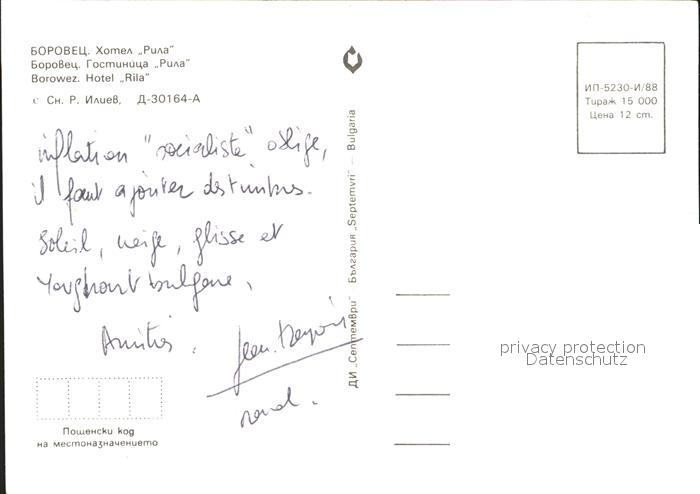 БОРОВЕЦ. Хотел „Рила"
Боровец. Гостиница „Рила"
Borowez. Hotel „Rila"
с Сн. Р. Илиев, Д-30164-А
inflation "socialiste" oblige,
il faut ajouter des timbres.
Soleil, neige, glisse et
Yoghourt bulgare,
Amitiés.
Jean
Пощенски код
на местоназначението
ДИ „Септември" България „Septemvri" — Bulgaria
ИП-5230-И/88
Тираж 15 000
Цена 12 ст.
privacy protection
Datenschutz